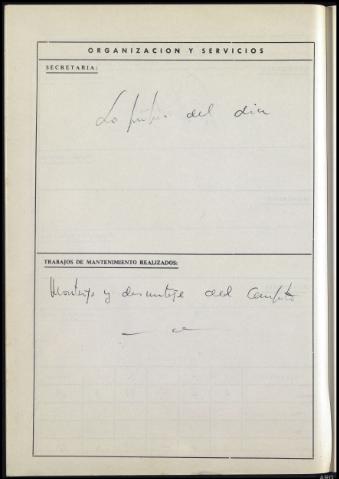 ORGANIZACION Y SERVICIOS
SECRETARIA:
Lo del dia
TRABAJOS DE MANTENIMIENTO REALIZADOS:
Montaje y desmontaje del